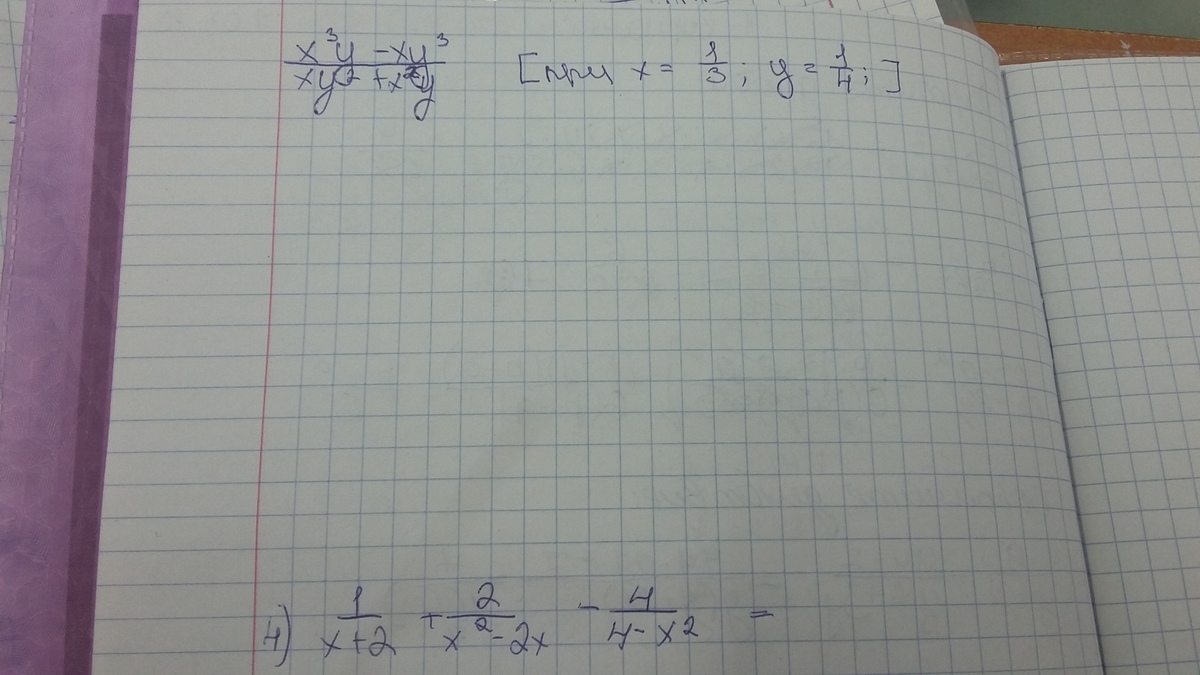 x³y - xy³ / xy² + x²y [при x = 1/3; y = 1/4; ]
4) 1/x+2 + 2/x²-2x - 4/4-x² =